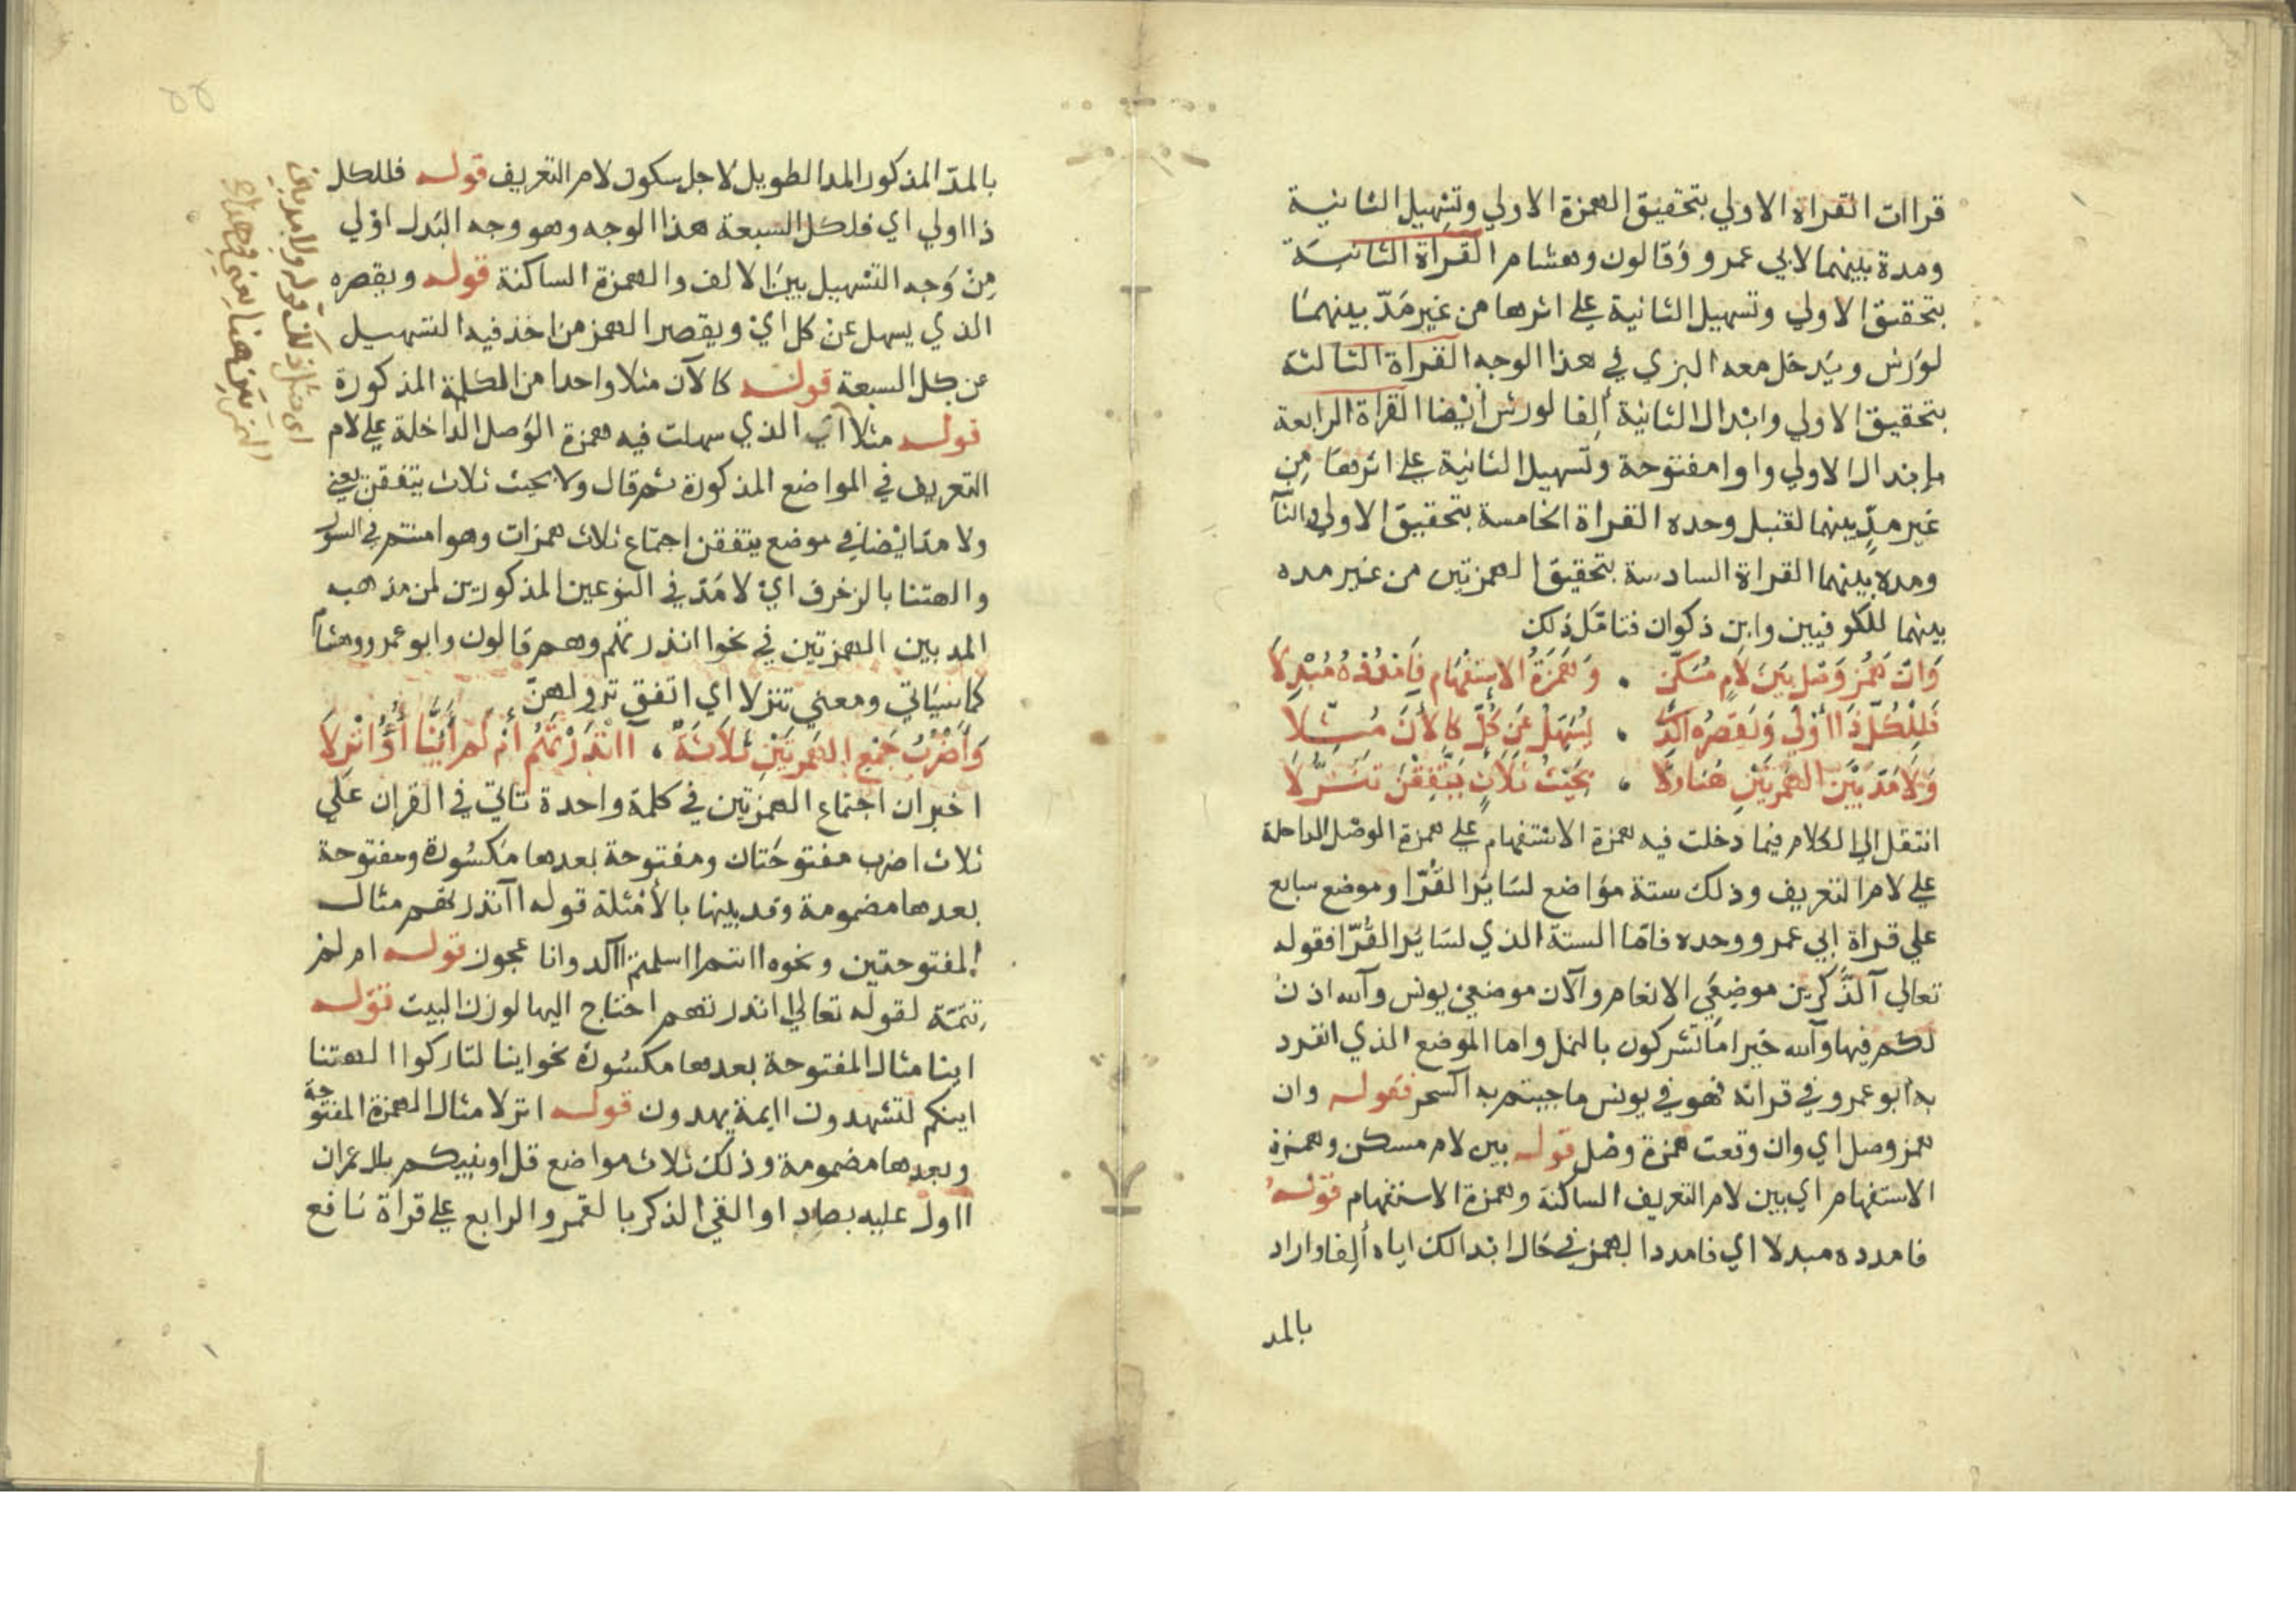 قراات القراه الاولي بتحقيق الهمزة الاولي وتسهيل الثانية
ومدة بينهما لابي عمرو وقالون وهشام القراة الثانية
بتحقيق الاولي وتسهيل الثانية علي اثرها من غير مدّ بينهما
لورش ويدخل معه البزي في هذا الوجه القراة الثالثة
بتحقيق الاولي وابدال الثانية ألفا لورش أيضا القراة الرابعة
بإبدال الاولي واوا مفتوحة وتسهيل الثانية علي اثرها من
غير مدٍّ بينهما لقنبل وحده القراة الخامسة بتحقيق الاولي
ومده بينهما القراة السادسة بتحقيق الهمزتين من غير مده
بينهما للكوفيين وابن ذكوان فتامّل ذلك
وَان هَمْز وَصْل بَيْنَ لَامٍ مُسَكَّن • وَهَمْزَةُ الاِسْتِفْهَام فَامْدُدْهُ مُبْدِلَا
فَلِلْكُلّ ذَا اَوْلَي وَيَقْصُرُه الَّذِي • يُسَهِّلُ عَن كُلّ كَالآنَ مُثِّلَا
وَلَا مَدّ بَيْنَ الهَمْزَتَيْنِ هُنَا وَلَا • بِحَيْثُ ثَلَاثٍ يَتَّفِقْنَ تَنَزُّلَا
انتقل الي الكلام فيما دخلت فيه همزة الاستفهام علي همزة الوصل الداخلة
علي لام التعريف وذلك ستة مواضع لسائر القُرّا وموضع سابع
علي قراة ابي عمرو وحده فامّا الستة الذي لسائر القُرّا فقوله
تعالي آلذّكرين موضعي الانعام وآلآن موضعي يونس وآلله اذن
لكم فيها وآلله خير امّا تشركون بالنمل واما الموضع الذي انفرد
به ابو عمرو في قراته فهو في يونس ماجيتم به آلسحر فقوله وان
همز وصل اي وان وقعت همزة وصل قوله بين لام مسكن وهمزة
الاستفهام اي بين لام التعريف الساكنة وهمزة الاستفهام قوله
فامدده مبدلا اي فامدد الهمز في حال ابدالك اياه ألفا واراد
بالمد
بالمدّ المذكور المد الطويل لاجل سكون لام التعريف قوله فللكل
ذا اولي اي فلكل السبعة هذا الوجه وهو وجه البدل اولي
من وجه التسهيل بين الالف والهمزة الساكنة قوله ويقصره
الذي يسهل عن كل اي ويقصر الهمز من اخذ فيه التسهيل
عن كل السبعة قوله كالآن مثلا واحدا من الكلمة المذكورة
قوله مثلا اي الذي سهلت فيه همزة الوصل الداخلة علي لام
التعريف في المواضع المذكورة ثم قال ولا بحيث ثلاث يتفقن يعني
ولا مدّ ايضا في موضع يتفقن اجتماع ثلاث همزات وهو امنتم في السور
والهتنا بالزخرف اي لا مدّ في النوعين المذكورين لمن مذهبه
المد بين الهمزتين في نحو اانذرتهم وهم قالون وابو عمرو وهشام
كما سياتي ومعني تنزلا اي اتفق نزولهنّ
وَأَضْرُبُ جَمْعِ الهَمْزَتَيْنِ ثَلَاثَةٌ • آانْذَرْتَهُم أَمْ لَم أَئِنَّا أَؤُنْزِلَا
اخبر ان اجتماع الهمزتين في كلمة واحدة تاتي في القران علي
ثلاث اضرب مفتوحتان ومفتوحة بعدها مكسورة ومفتوحة
بعدها مضمومة وقد بينها بالأمثلة قوله اآنذرتهم مثال
المفتوحتين ونحوه اانتم ااسلمتم اآلد وانا عجوز قوله ام لم
تتمة لقوله تعالي اانذرتهم احتاج اليها لوزن البيت قوله
اينا مثال المفتوحة بعدها مكسورة نحو اينا لتاركوا الهتنا
اينكم لتشهدون اايمة يهدون قوله انزلا مثال الهمزة المفتوحة
وبعدها مضمومة وذلك ثلاث مواضع قل اونبيكم بال عمران
ااول عليه بصاد اوالقي الذكر بالقمر والرابع علي قراة نافع
اي مثل ذلك قوله ولا مد بين
الهمزتين هنا يعني في هذا